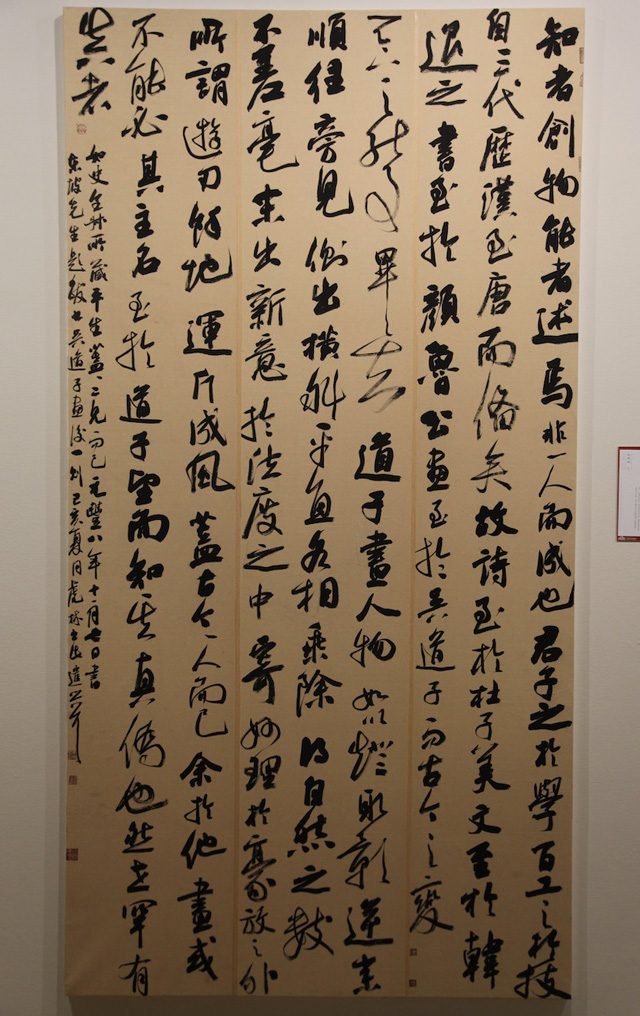 知者創物能者述焉非一人而成也君子之於學百工之於技
自三代歷漢至唐而備矣故詩至於杜子美文至於韓
退之書至於顏魯公畫至於吳道子而古今之變
天下之能事畢矣道子畫人物如以燈取影逆來
順往旁見側出橫斜平直各相乘除得自然之數
不差毫末出新意於法度之中寄妙理於豪放之外
所謂遊刃餘地運斤成風蓋古今一人而已余於他畫或
不能必其主名至於道子望而知其真偽也然世罕有
真者
如史全叔所藏平生蓋一二見而已元豐八年十一月七日書
東坡先生題跋書吳道子畫後一則己亥夏月虎林